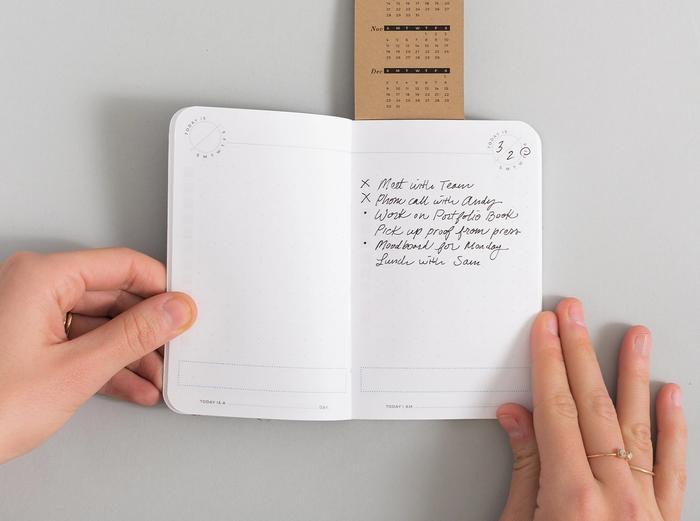 Nov S M T W T F S
Dec S M T W T F S
TODAY IS
S M T W T F S
TODAY IS
3 2
X Meet with Team
X Phone call with Andy
• Work on Portfolio Book
Pick up proof from press
• Moodboard for Monday
Lunch with Sam
TODAY IS A DAY
TODAY I AM